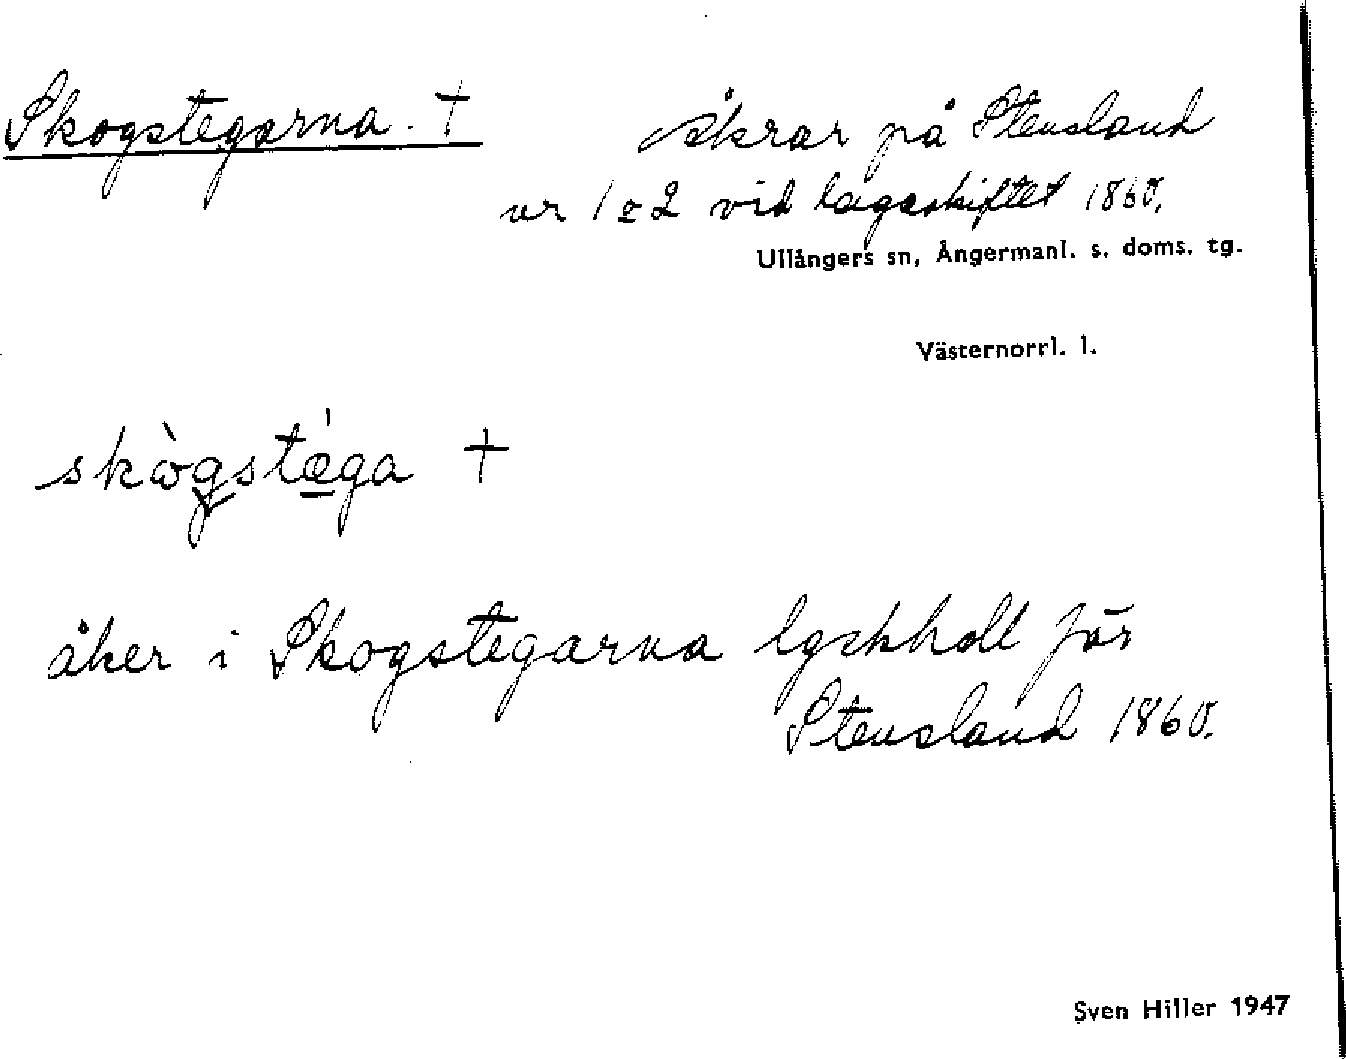 Skogstegarna. †
åkrar på Stensland
nr 1 o 2 vid lagaskiftet 1860.
Ullångers sn, Ångermanl. s. doms. tg.
Västernorrl. l.
skògstæ̀ga †
åker i Skogstegarna lgskholl för
Stensland 1860.
Sven Hiller 1947